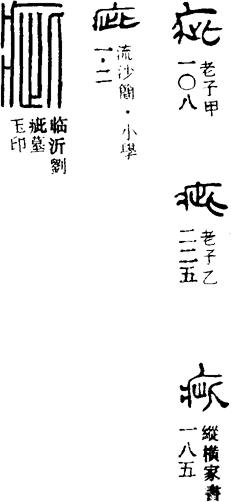 疵
老子甲
一〇八
疵
老子乙
二二五
疵
縱橫家書
一八五
疵
流沙簡·小學
一·二
疵
临沂劉
疵墓
玉印